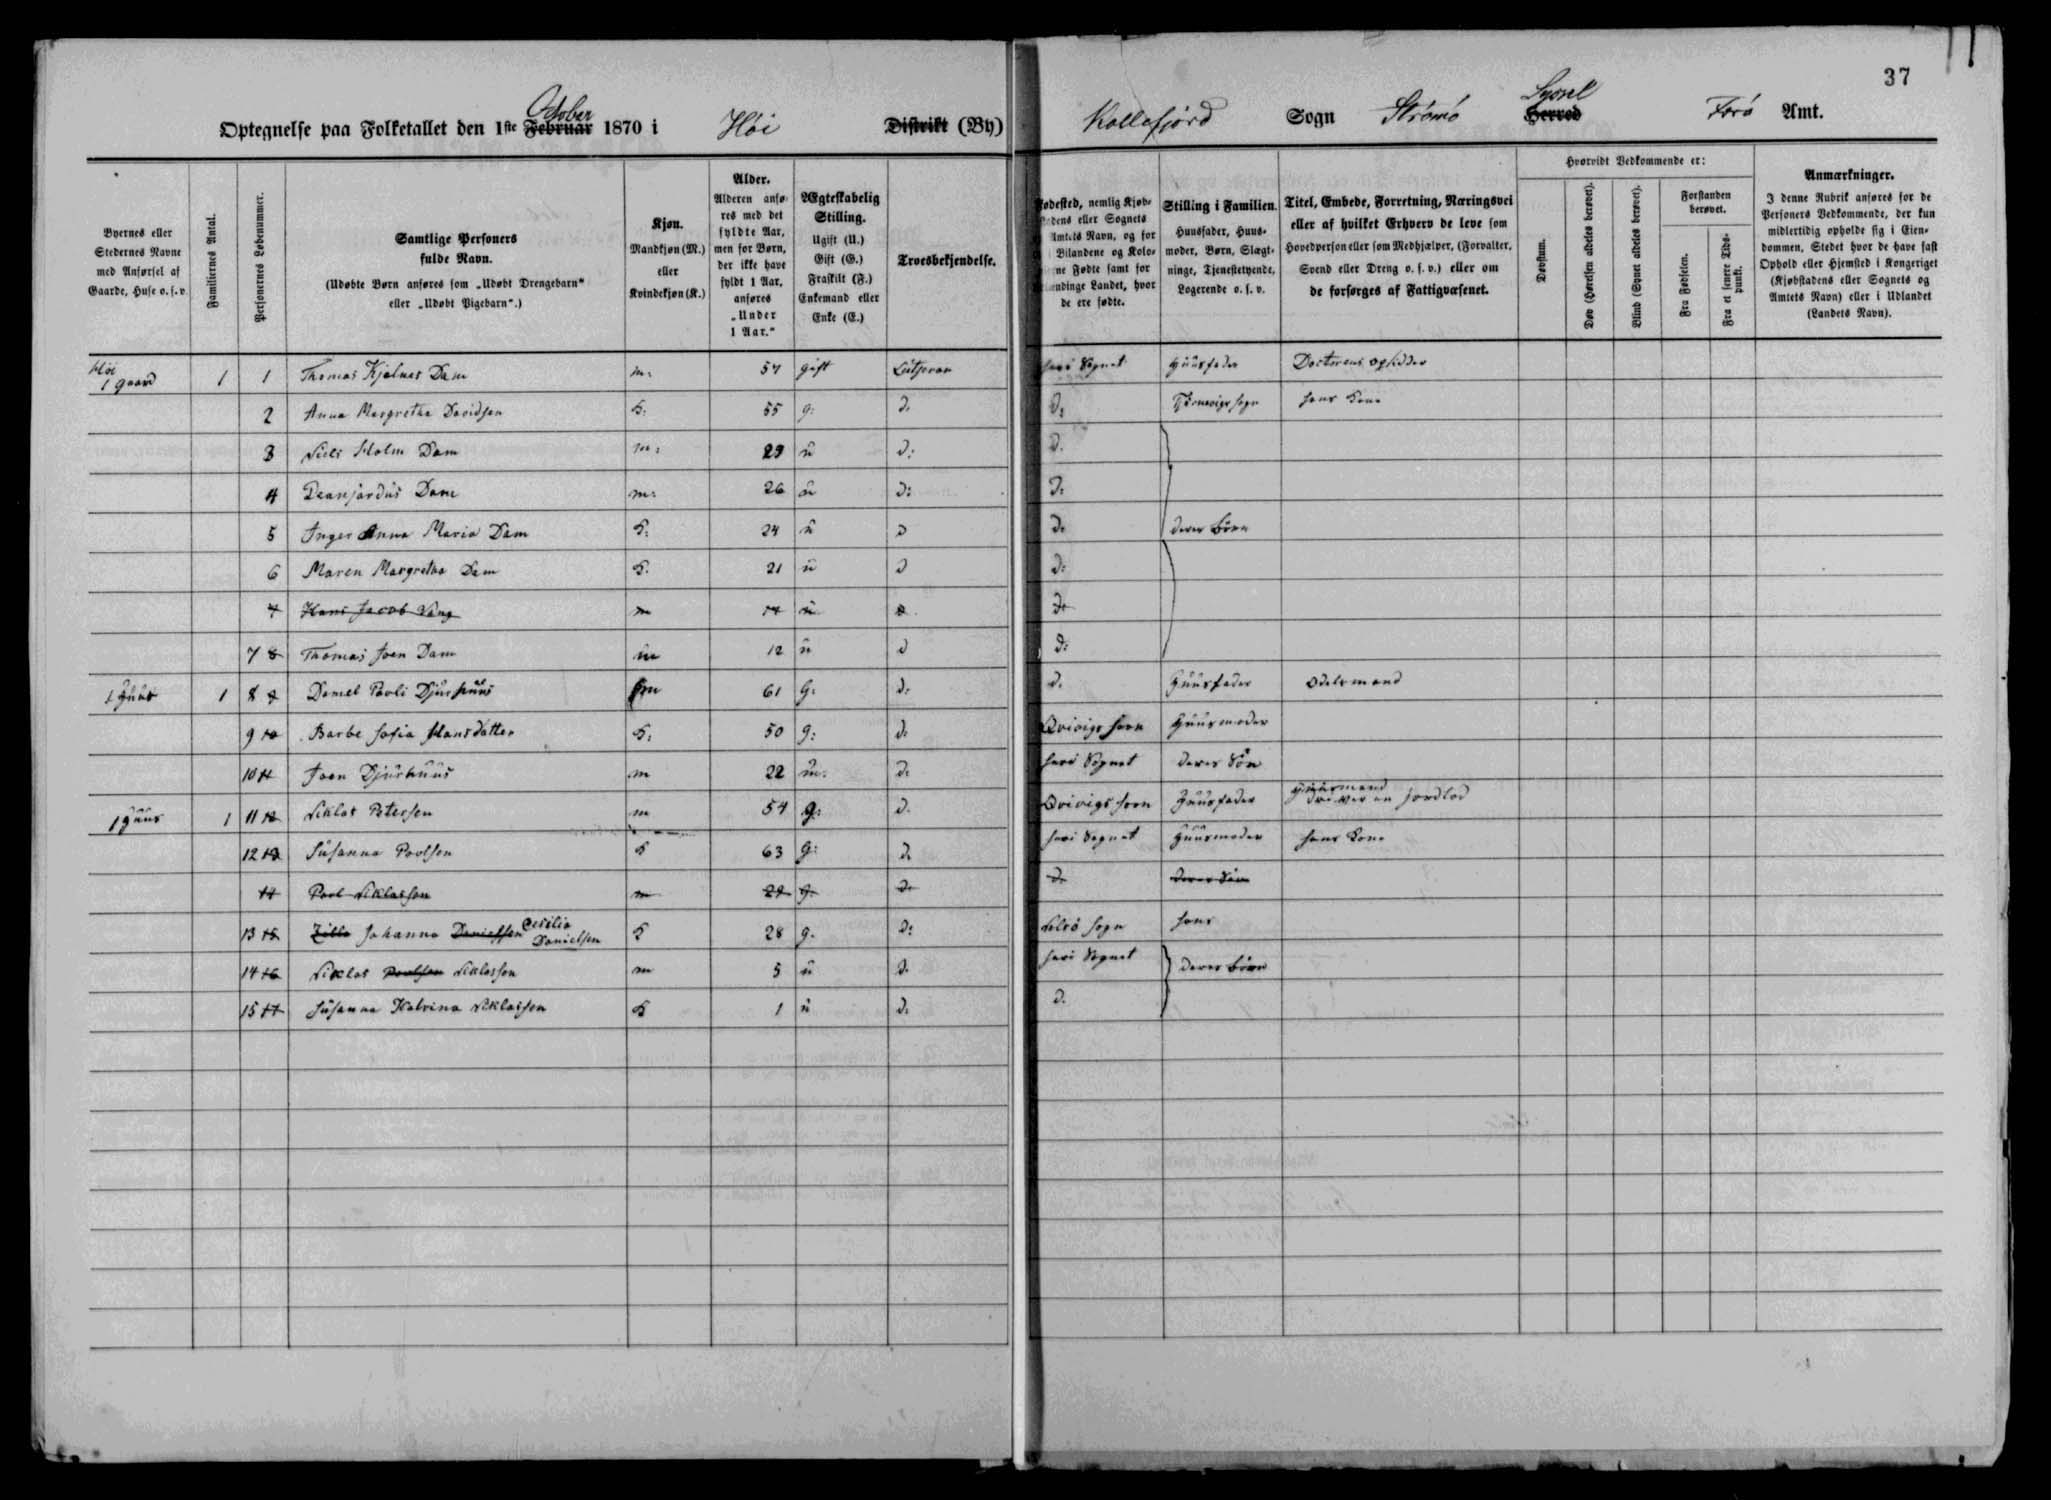 37
Optegnelse paa Folketallet den 1ste Februar October 1870 i Höi Distrikt (By) Kollefjörd Sogn Strömö Herred Syssel Færö Amt.
Byernes eller Stedernes Navne med Anførsel af Gaarde, Huse o. s. v.
Familiernes Antal.
Personernes Løbenummer.
Samtlige Personers fulde Navn.
(Udøbte Børn anføres som „Udøbt Drengebarn" eller „Udøbt Pigebarn".)
Kjøn.
Mandkjøn (M.) eller Kvindekjøn (K.)
Alder.
Alderen anføres med det fyldte Aar, men for Børn, der ikke have fyldt 1 Aar, anføres „Under 1 Aar."
Ægteskabelig Stilling.
Ugift (U.) Gift (G.) Fraskilt (F.) Enkemand eller Enke (E.)
Troesbekjendelse.
Fødested, nemlig Kjøbstadens eller Sognets og Amtets Navn, og for Bilandene og Kolonierne Fødte samt for Udlændinge Landet, hvor de ere fødte.
Stilling i Familien.
Huusfader, Huusmoder, Børn, Slægtninge, Tjenestetyende, Logerende o. s. v.
Titel, Embede, Forretning, Næringsvei eller af hvilket Erhverv de leve som Hovedperson eller som Medhjælper, (Forvalter, Svend eller Dreng o. s. v.) eller om de forsørges af Fattigvæsenet.
Hvorvidt Vedkommende er:
Døvstum.
Døv (Hørelsen aldeles berøvet).
Blind (Synet aldeles berøvet).
Forstanden berøvet.
Fra Fødselen.
Fra et senere Tidspunkt.
Anmærkninger.
I denne Rubrik anføres for de Personers Vedkommende, der kun midlertidig opholde sig i Eiendommen, Stedet hvor de have fast Ophold eller Hjemsted i Kongeriget (Kjøbstadens eller Sognets og Amtets Navn) eller i Udlandet (Landets Navn).
Höi
1 Gaard 1 1 Thomas Kjelnes Dam m: 57 gift Lutheran heri Sognet Huusfader
2 Anna Margretha Davidsen K: 55 g: d. d: hans Kone
3 Niels Holm Dam m: 29 u d: d.
4 Dam m: 26 u d: d:
5 Inger Anna Maria Dam K: 24 u d d: deres Börn
6 Maren Margretha Dam K. 21 u d d:
7 Hans Jacob m 14 u d d:
7 8 Thomas Joen Dam m 12 u d d:
1 Huus 1 8 9 Daniel Povli Djurhuus m 61 g: d: d. Huusfader Odelsmand
9 10 Barbe Sofia Hansdatter K: 50 g: d: Qvivigs sogn Huusmoder
10 11 Joen Djurhuus m 22 u: d: heri Sognet deres Sön
1 Huus 1 11 12 Niklas Petersen m 54 g: d. Qvivigs sogn Huusfader Huusmand driver en Jordlod
12 13 Susanna Povlsen K 63 g: d. heri Sognet Huusmoder hans Kone
14 Povl Niklassen m 29 g. d. d. deres Sön
13 15 Johanna Danielsen Cecilia Danielsen K 28 g. d: sogn hans
14 16 Niklas Povlsen Niklassen m 5 u d. heri Sognet deres Börn
15 17 Susanna Katrina Niklassen K 1 u d. d.